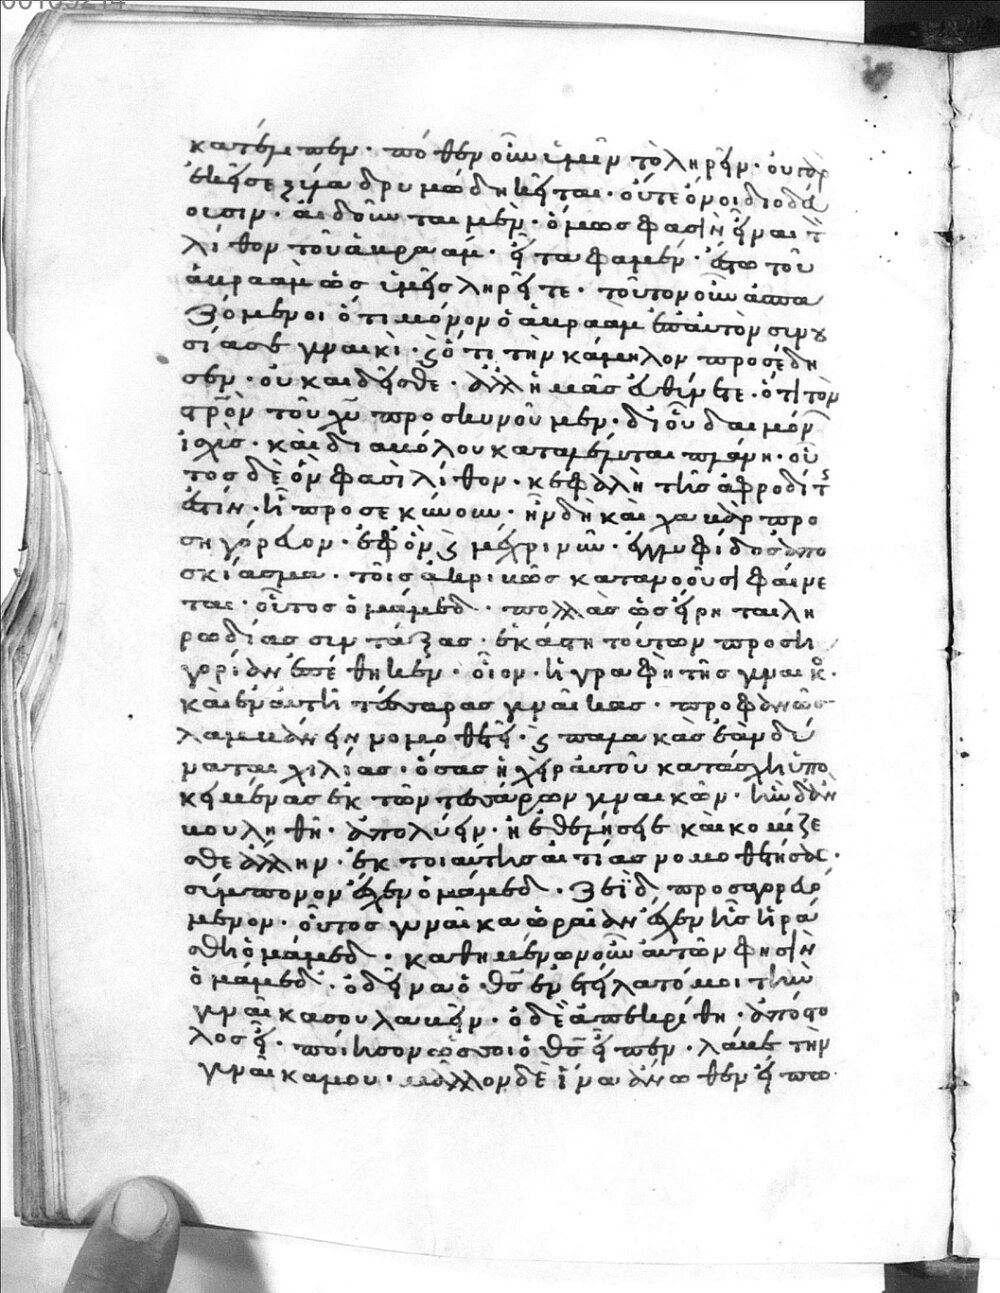 00105214
κατέμπεν· πόθεν οὖν ὑμῖν τὸ ληρεῖν· οὔτε γὰρ
ἐκεῖσε ξύλα δρυμώδη κεῖται· οὔτε ὄνοι διοδεύ
ουσιν· αἰδοῦνται μὲν· ὅμως φασὶν εἶναι τ
λίθον τοῦ ἀβραάμ· εἶτα φαμέν· ἔστω τοῦ
ἀβραὰμ ὡς ὑμεῖς ληρεῖτε· τοῦτον οὖν ἀσπα
ζόμενοι ὅτι μόνον ὁ ἀβραὰμ ἐπ αὐτὸν συνου
σίασε γυναικὶ· καὶ ὅτι τὴν κάμηλον προσέδη
σεν· οὐκ αἰδεῖσθε· ἀλλ ἡμᾶς εὐθύνετε· ὅτι τὸν
στρὸν τοῦ χυ προσκυνοῦμεν· δι οὗ δαιμόνων
ἰσχὺς· καὶ διαβόλου καταβέβληται πλάνη· οὗ
τος δὲ ὅν φασὶ λίθον· κεφαλὴ τῆς ἀφροδίτης
ἐστίν· ἣ προσεκύνουν· ἣν δὴ καὶ χαβὰρ προ
σηγόρευον· ἐφ ὃν καὶ μέχρι νῦν· ἐγγλυφίδος ἀπο
σκίασμα· τοῖς ἀκριβῶς κατανοοῦσι φαίνε
ται· οὗτος ὁ μάμεδ· πολλὰς ὡς εἴρηται λη
ρωδίας συντάξας· ἑκάστη τούτων προση
γορίαν ἐπέθηκεν· οἷον· ἡ γραφὴ τῆς γυναικός·
καὶ ἐν αὐτῆ τέσσαρας γυναῖκας· προφανῶς
λαμβάνειν νομοθετεῖ· καὶ παλλακὰς ἐὰν δύ
ναται χιλίας· ὅσας ἡ χεὶρ αὐτοῦ κατάσχη ὑπο
κειμένας ἐκ τῶν τεσσάρων γυναικῶν· ἣν δ ἂν
βουληθῆ· ἀπολύειν· ἣ ἐθελήσειε καὶ κομίζε
σθε ἄλλην· ἐκ τοιαύτης αἰτίας νομοθετήσας·
σύμπονον ἔσχεν ὁ μάμεδ· ζεῒδ προσαγορευό
μενον· οὗτος γυναῖκα ὡραίαν ἔσχεν ἧς ἠρά
σθη ὁ μάμεδ· καθημένων οὖν αὐτῶν φησὶν
ὁ μάμεδ· ὁ δεῖνα ὁ θς ἐνετείλατό μοι τὴν
γυναῖκα σου λαβεῖν· ὁ δὲ ἀπεκρίθη· ἀπόστο
λος εἶ· ποίησον ὡς σοι ὁ θς εἶπεν· λάβε τὴν
γυναῖκα μου· μᾶλλον δὲ ἵνα ἄνωθεν εἴπω